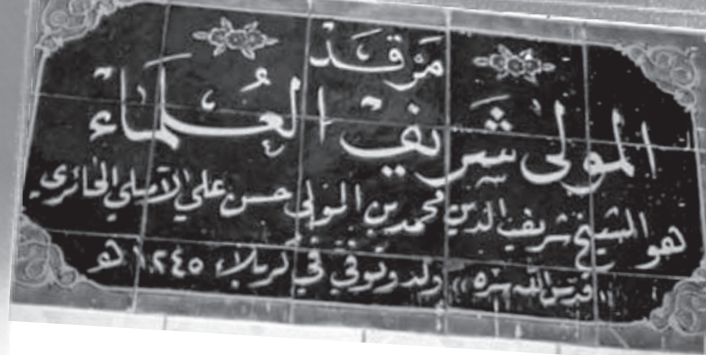 مَرقَد
المولى شَريف العُلَماء
هو الشيخ شريف الدين محمد بن المولى حسن علي الآملي الحائري
«قدس الله سره» ولد وتوفي في كربلاء ١٢٤٥ هـ